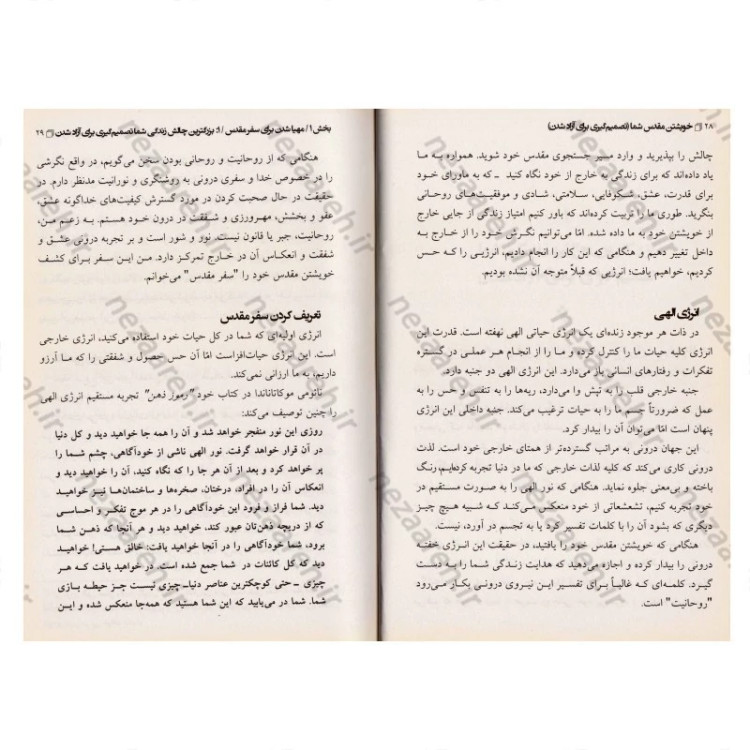 ۲۸ خویشتن مقدس شما (تصمیم‌گیری برای آزاد شدن)
چالش را بپذیرید و وارد مسیر جستجوی مقدس خود شوید. همواره به ما
یاد داده‌اند که برای زندگی به خارج از خود نگاه کنید ـ که به ماورای خود
برای قدرت، عشق، شکوفایی، سلامتی، شادی و موفقیت‌های روحانی
بنگرید. طوری ما را تربیت کرده‌اند که باور کنیم امتیاز زندگی از جایی خارج
از خویشتن خود به ما داده شده. امّا می‌توانیم نگرش خود را از خارج به
داخل تغییر دهیم و هنگامی که این کار را انجام دادیم، انرژیی را که حس
کردیم، خواهیم یافت؛ انرژیی که قبلاً متوجه آن نشده بودیم.
انرژی الهی
در ذات هر موجود زنده‌ای یک انرژی حیاتی الهی نهفته است. قدرت این
انرژی کلیه حیات ما را کنترل کرده و ما را از انجام هر عملی در گستره
تفکرات و رفتارهای انسانی باز می‌دارد. این انرژی الهی دو جنبه دارد.
جنبه خارجی قلب را به تپش وا می‌دارد، ریه‌ها را به تنفس و حس را به
عمل که ضرورتاً جسم ما را به حیات ترغیب می‌کند. جنبه داخلی این انرژی
پنهان است امّا می‌توان آن را بیدار کرد.
این جهان درونی به مراتب گسترده‌تر از همتای خارجی خود است. لذت
درونی کاری می‌کند که کلیه لذات خارجی که ما در دنیا تجربه کرده‌ایم، رنگ
باخته و بی‌معنی جلوه نماید. هنگامی که نور الهی را به صورت مستقیم در
خود تجربه کنیم، تشعشعاتی از خود منعکس می‌کند که شبیه هیچ چیز
دیگری که بشود آن را با کلمات تفسیر کرد یا به تجسم در آورد، نیست.
هنگامی که خویشتن مقدس خود را یافتید، در حقیقت این انرژی خفته
درونی را بیدار کرده و اجازه می‌دهید که هدایت زندگی شما را به دست
گیرد. کلمه‌ای که غالباً برای تفسیر این نیروی درونی بکار می‌رود
"روحانیت" است.
بخش ۱ / مهیا شدن برای سفر مقدس / ۱: بزرگترین چالش زندگی شما تصمیم‌گیری برای آزاد شدن ۲۹
هنگامی که از روحانیت و روحانی بودن سخن می‌گویم، در واقع نگرشی
را در خصوص خدا و سفری درونی به روشنگری و نورانیت مدنظر دارم. در
حقیقت در حال صحبت کردن در مورد گسترش کیفیت‌های خداگونه عشق،
عفو و بخشش، مهرورزی و شفقت در درون خود هستم. به زعم من،
روحانیت، جبر یا قانون نیست. نور و شور است و بر تجربه درونی عشق و
شفقت و انعکاس آن در خارج تمرکز دارد. من این سفر برای کشف
خویشتن مقدس خود را "سفر مقدس" می‌خوانم.
تعریف کردن سفر مقدس
انرژی اولیه‌ای که شما در کل حیات خود استفاده می‌کنید، انرژی خارجی
است. این انرژی حیات‌افزاست امّا آن حس حصول و شفقتی را که ما آرزو
داریم، به ما ارزانی نمی‌کند.
نائومی موکاتاناندا در کتاب خود "رموز ذهن" تجربه مستقیم انرژی الهی
را چنین توصیف می‌کند:
روزی این نور منفجر خواهد شد و آن را همه جا خواهید دید و کل دنیا
در آن قرار خواهد گرفت. نور الهی ناشی از خودآگاهی، چشم شما را
پر خواهد کرد و بعد از آن هر جا را که نگاه کنید، آن را خواهید دید و
انعکاس آن را در افراد، درختان، صخره‌ها و ساختمان‌ها نیز خواهید
دید. شما فراز و فرود این خودآگاهی را در هر موج تفکر و احساسی
که از دریچه ذهن‌تان عبور کند، خواهید دید و هر آنجا که ذهن شما
برود، شما خودآگاهی را در آنجا خواهید یافت؛ خالق هستی! خواهید
دید که کل کائنات در شما جمع شده است. در خواهید یافت که هر
چیزی ـ حتی کوچکترین عناصر دنیا ـ چیزی نیست جز حیطه بازی
شما. شما در می‌یابید که این شما هستید که همه‌جا منعکس شده و این
nezaareh.ir